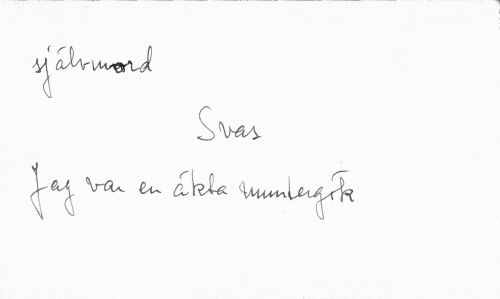 självmord
Svas
Jag var en äkta muntergök